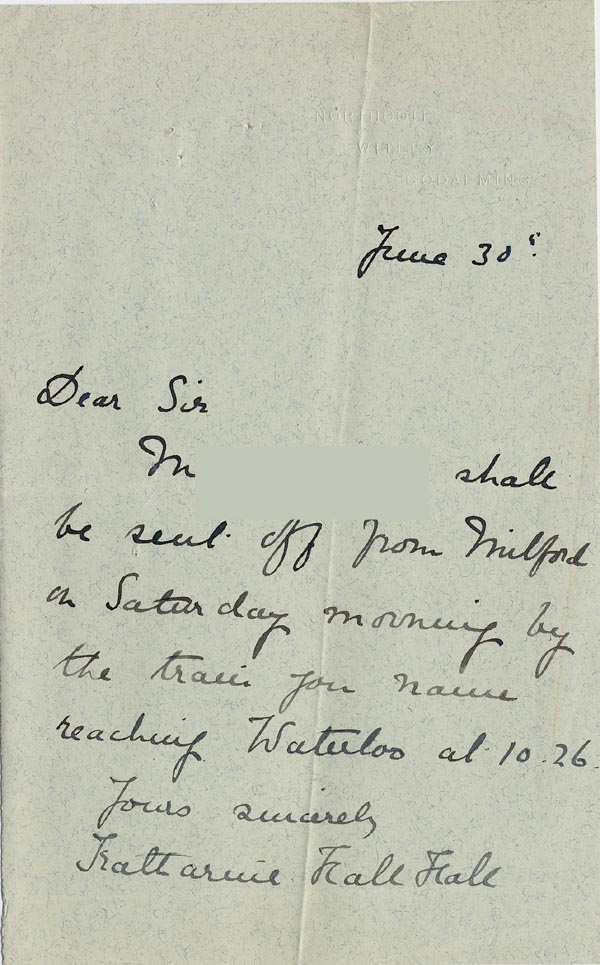 NORTHCOTE
WITLEY
GODALMING
June 30
Dear Sir
M shall
be sent off from Milford
on Saturday morning by
the train you name
reaching Waterloo at 10.26.
Yours sincerely
Katharine Hall Hall